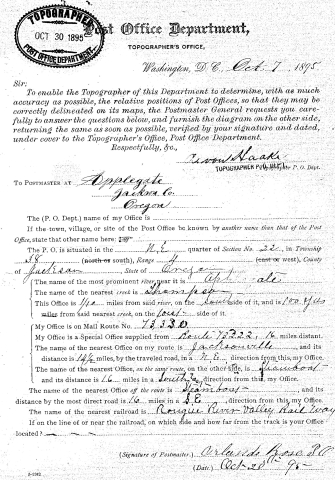 TOPOGRAPHER
OCT 30 1895
POST OFFICE DEPARTMENT
Post Office Department,
TOPOGRAPHER'S OFFICE,
Washington, D. C., Oct. 7, 1895
Sir:
To enable the Topographer of this Department to determine, with as much
accuracy as possible, the relative positions of Post Offices, so that they may be
correctly delineated on its maps, the Postmaster General requests you care-
fully to answer the questions below, and furnish the diagram on the other side,
returning the same as soon as possible, verified by your signature and dated,
under cover to the Topographer's Office, Post Office Department.
Respectfully, &c.,
TOPOGRAPHER P. O. Dept.
To POSTMASTER AT Applegate
Jackson Co.
Oregon
The (P. O. Dept.) name of my Office is
If the town, village, or site of the Post Office be known by another name than that of the Post Office,
state that other name here:
The P. O. is situated in the N.E. quarter of Section No. 22, in Township
38 (north or south), Range 4 (east or west), County
of Jackson, State of Oregon
The name of the most prominent river near it is
The name of the nearest creek is Thompson
This Office is 1/40 miles from said river, on the South side of it, and is 100 yds
miles from said nearest creek, on the side of it.
My Office is on Mail Route No. 73330
My Office is a Special Office supplied from Route 73322, 16 miles distant.
The name of the nearest office on my route is Jacksonville, and its
distance is 16 1/2 miles, by the traveled road, in a N.E. direction from this, my Office.
The name of the nearest Office, on the same route, on the other side, is Steamboat
and its distance is 16 miles in a direction from this, my Office.
The name of the nearest Office off the route is Steamboat, and its
distance by the most direct road is 16 miles in a S.E. direction from this, my Office.
The name of the nearest railroad is Rougue River Valley Rail Way
If on the line of or near the railroad, on which side and how far from the track is your Office
located?
(Signature of Postmaster.) Rose PM
(Date.) Oct 20th 95